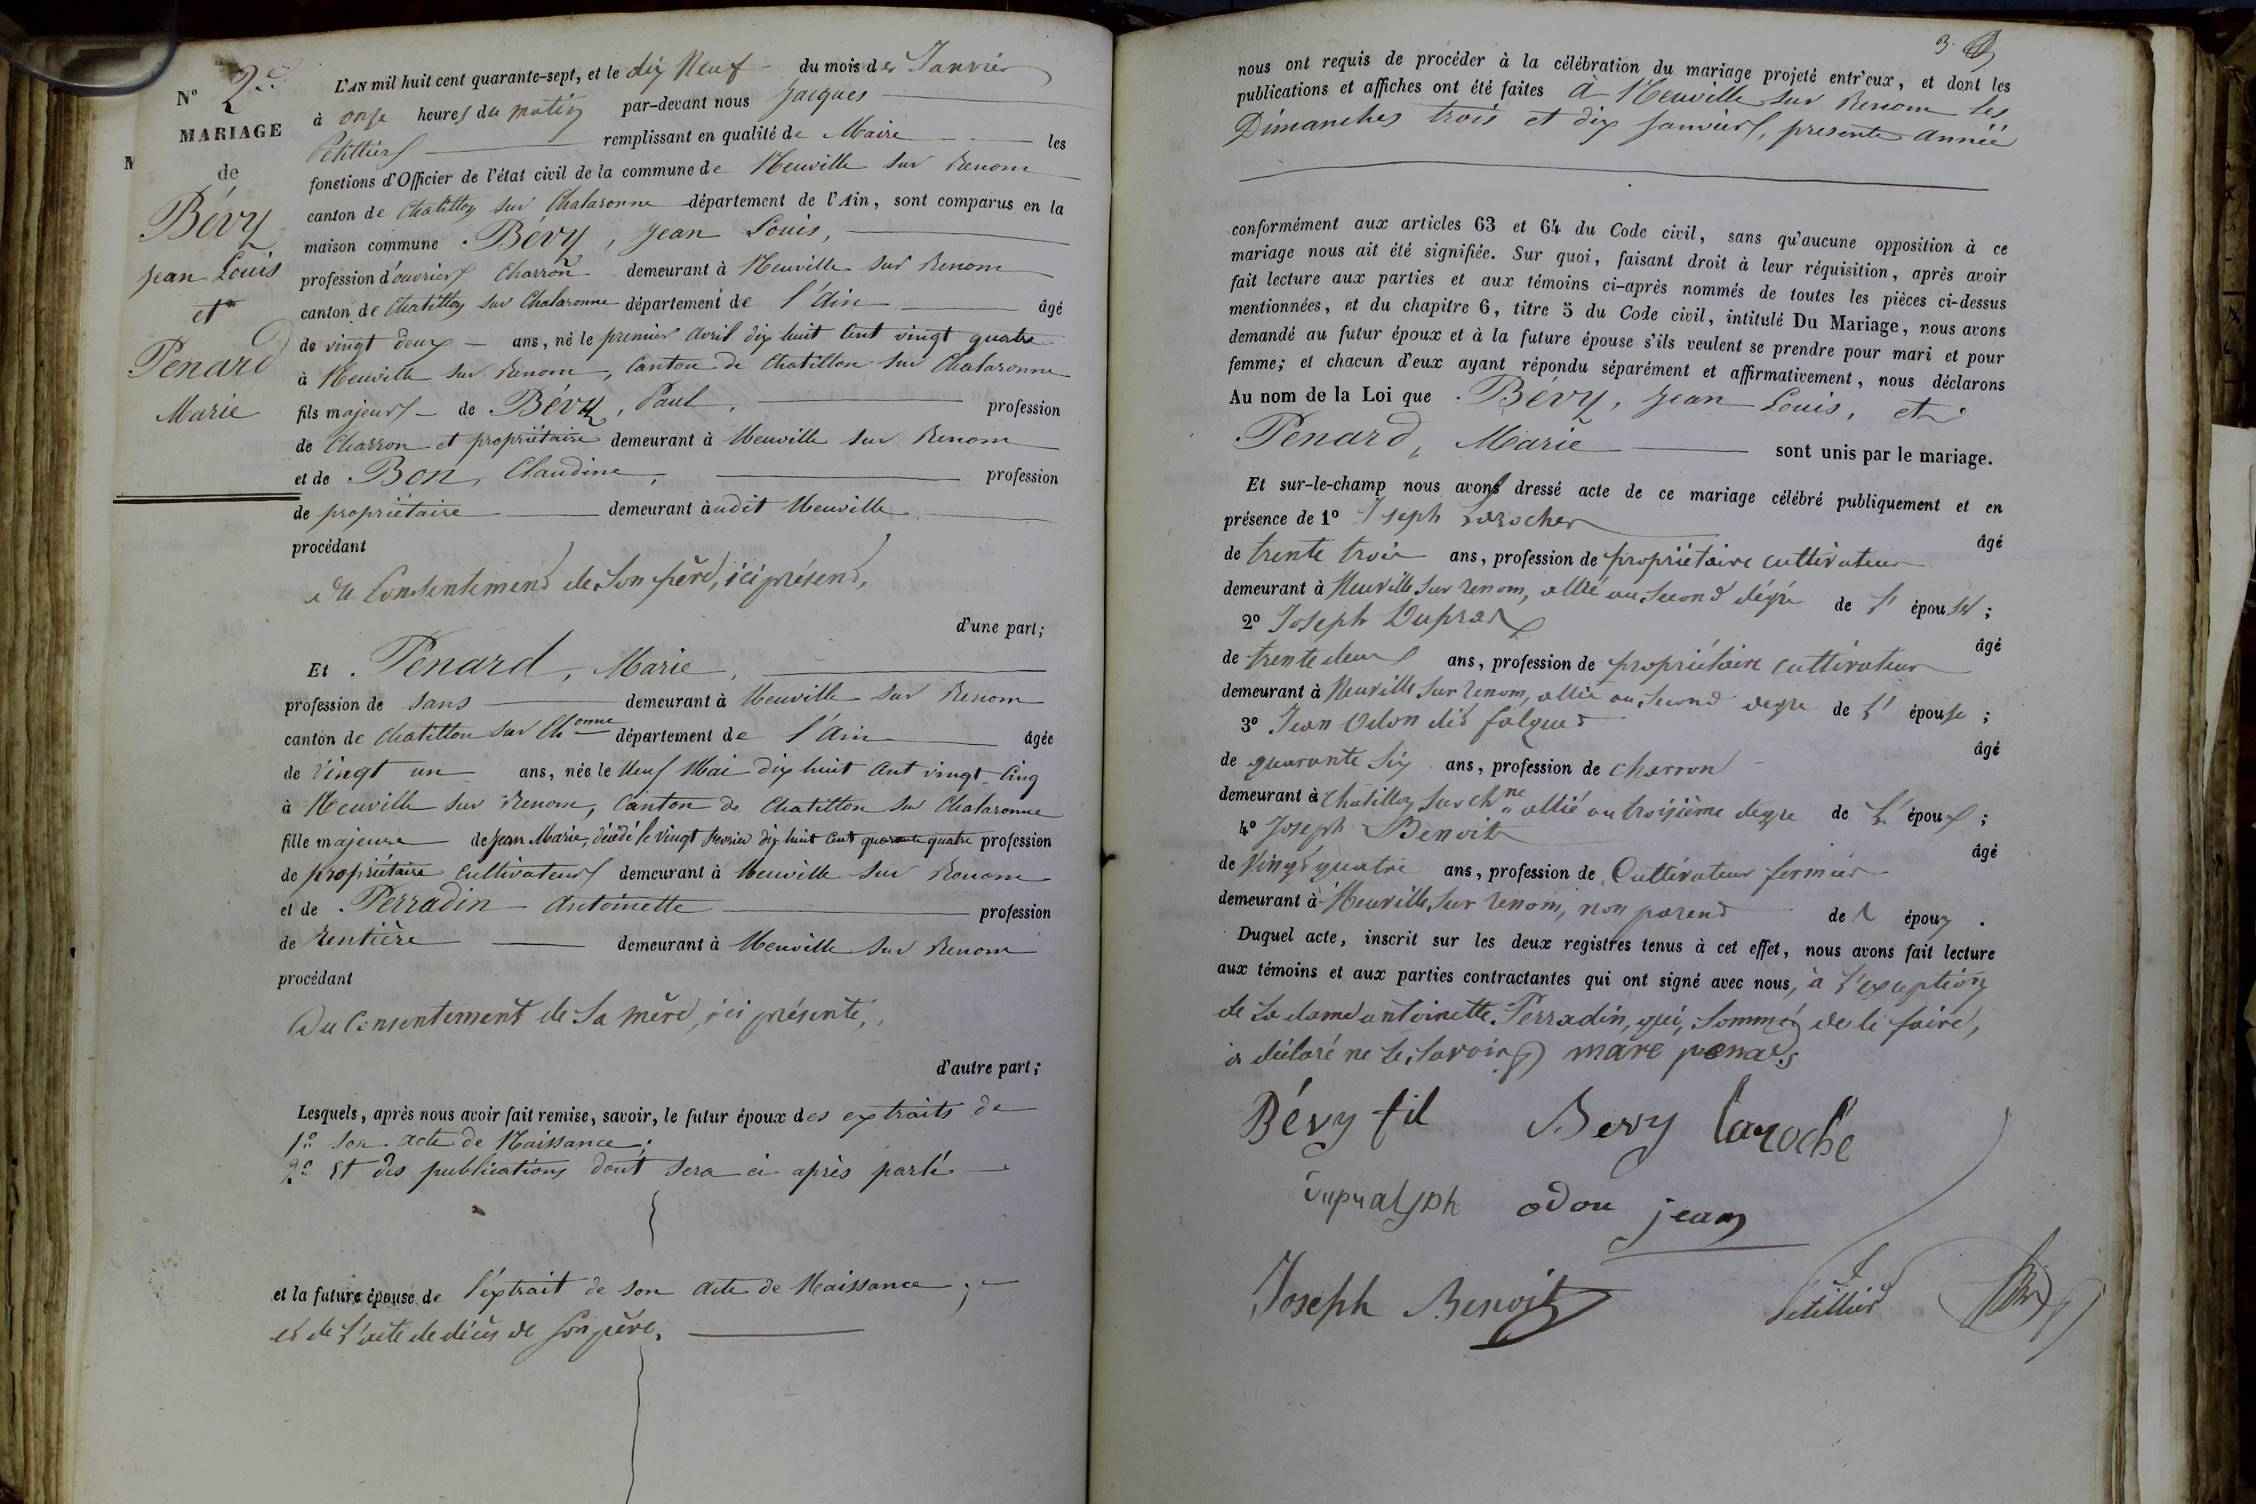 N° 2e
MARIAGE
de
Bévy
Jean Louis
et
Penard
Marie
L'AN mil huit cent quarante-sept, et le dix Neuf du mois de Janvier
à onze heures du matin par-devant nous Jacques
Petillier remplissant en qualité de Maire les
fonctions d'Officier de l'état civil de la commune de Neuville sur Renom
canton de Chatillon sur Chalaronne département de l'Ain, sont comparus en la
maison commune Bévy, Jean Louis,
profession d'ouvrier Charron demeurant à Neuville sur Renom
canton de Chatillon sur Chalaronne département de l'Ain âgé
de vingt deux ans, né le premier avril dix huit cent vingt quatre
à Neuville sur Renom, Canton de Chatillon sur Chalaronne
fils majeur de Bévy, Paul, profession
de Charron et propriétaire demeurant à Neuville sur Renom
et de Bon, Claudine, profession
de propriétaire demeurant àudit Neuville
procédant
du Consentement de son père, ici présent,
d'une part;
Et Penard, Marie,
profession de sans demeurant à Neuville sur Renom
canton de Chatillon sur Chonne département de l'Ain âgée
de Vingt un ans, née le Neuf Mai dix huit cent vingt Cinq
à Neuville sur Renom, Canton de Chatillon sur Chalaronne
fille majeure de Jean Marie, décédé le vingt février dix huit cent quarante quatre profession
de propriétaire cultivateur demeurant à Neuville sur Renom
et de Perradin Antoinette profession
de Rentière demeurant à Neuville sur Renom
procédant
Du Consentement de Sa mère, ici présente,
d'autre part;
Lesquels, après nous avoir fait remise, savoir, le futur époux des extraits de
1° son acte de Naissance;
2° Et des publications dont sera ci après parlé
et la future épouse de l'extrait de son acte de Naissance;
et de l'acte de décès de son père,
3
nous ont requis de procéder à la célébration du mariage projeté entr'eux, et dont les
publications et affiches ont été faites à Neuville sur Renom les
Dimanches trois et dix janvier, presente année
conformément aux articles 63 et 64 du Code civil, sans qu'aucune opposition à ce
mariage nous ait été signifiée. Sur quoi, faisant droit à leur réquisition, après avoir
fait lecture aux parties et aux témoins ci-après nommés de toutes les pièces ci-dessus
mentionnées, et du chapitre 6, titre 5 du Code civil, intitulé Du Mariage, nous avons
demandé au futur époux et à la future épouse s'ils veulent se prendre pour mari et pour
femme; et chacun d'eux ayant répondu séparément et affirmativement, nous déclarons
Au nom de la Loi que Bévy, Jean Louis, et
Penard, Marie sont unis par le mariage.
Et sur-le-champ nous avons dressé acte de ce mariage célébré publiquement et en
présence de 1° Joseph Larocher
âgé
de trente trois ans, profession de propriétaire cultivateur
demeurant à Neuville sur renom, allié au second dégré de l'épouse;
2° Joseph Duprat
âgé
de trente deux ans, profession de propriétaire cultivateur
demeurant à Neuville sur renom, allié au second degre de l'épouse;
3° Jean Odon dit
âgé
de quarante Six ans, profession de charron
demeurant à Chatillon sur chne allié au troisième degre de l'époux;
4° Joseph Benoit
âgé
de Vingt quatre ans, profession de Cultivateur fermier
demeurant à Neuville sur renom, non parent de l époux.
Duquel acte, inscrit sur les deux registres tenus à cet effet, nous avons fait lecture
aux témoins et aux parties contractantes qui ont signé avec nous, à l'exception
de la dame antoinette Perradin, qui, sommé de le faire,
a déclaré ne le savoir mare penard
Bévy fil Bevy laroche
odon jean
Joseph Benoit Petillier